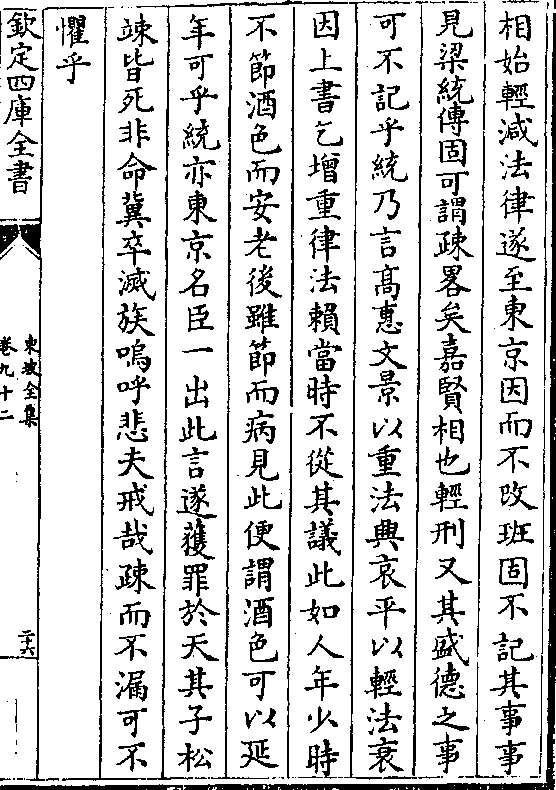 相始輕減法律遂至東京因而不改班固不記其事事
見梁統傳固可謂疎畧矣嘉賢相也輕刑又其盛德之事
可不記乎統乃言髙惠文景以重法興哀平以輕法衰
因上書乞增重律法賴當時不從其議此如人年少時
不節酒色而安老後雖節而病見此便謂酒色可以延
年可乎統亦東京名臣一出此言遂獲罪於天其子松
竦皆死非命冀卒滅族嗚呼悲夫戒哉疎而不漏可不
懼乎
欽定四庫全書
東坡全集
卷九十二
二十六